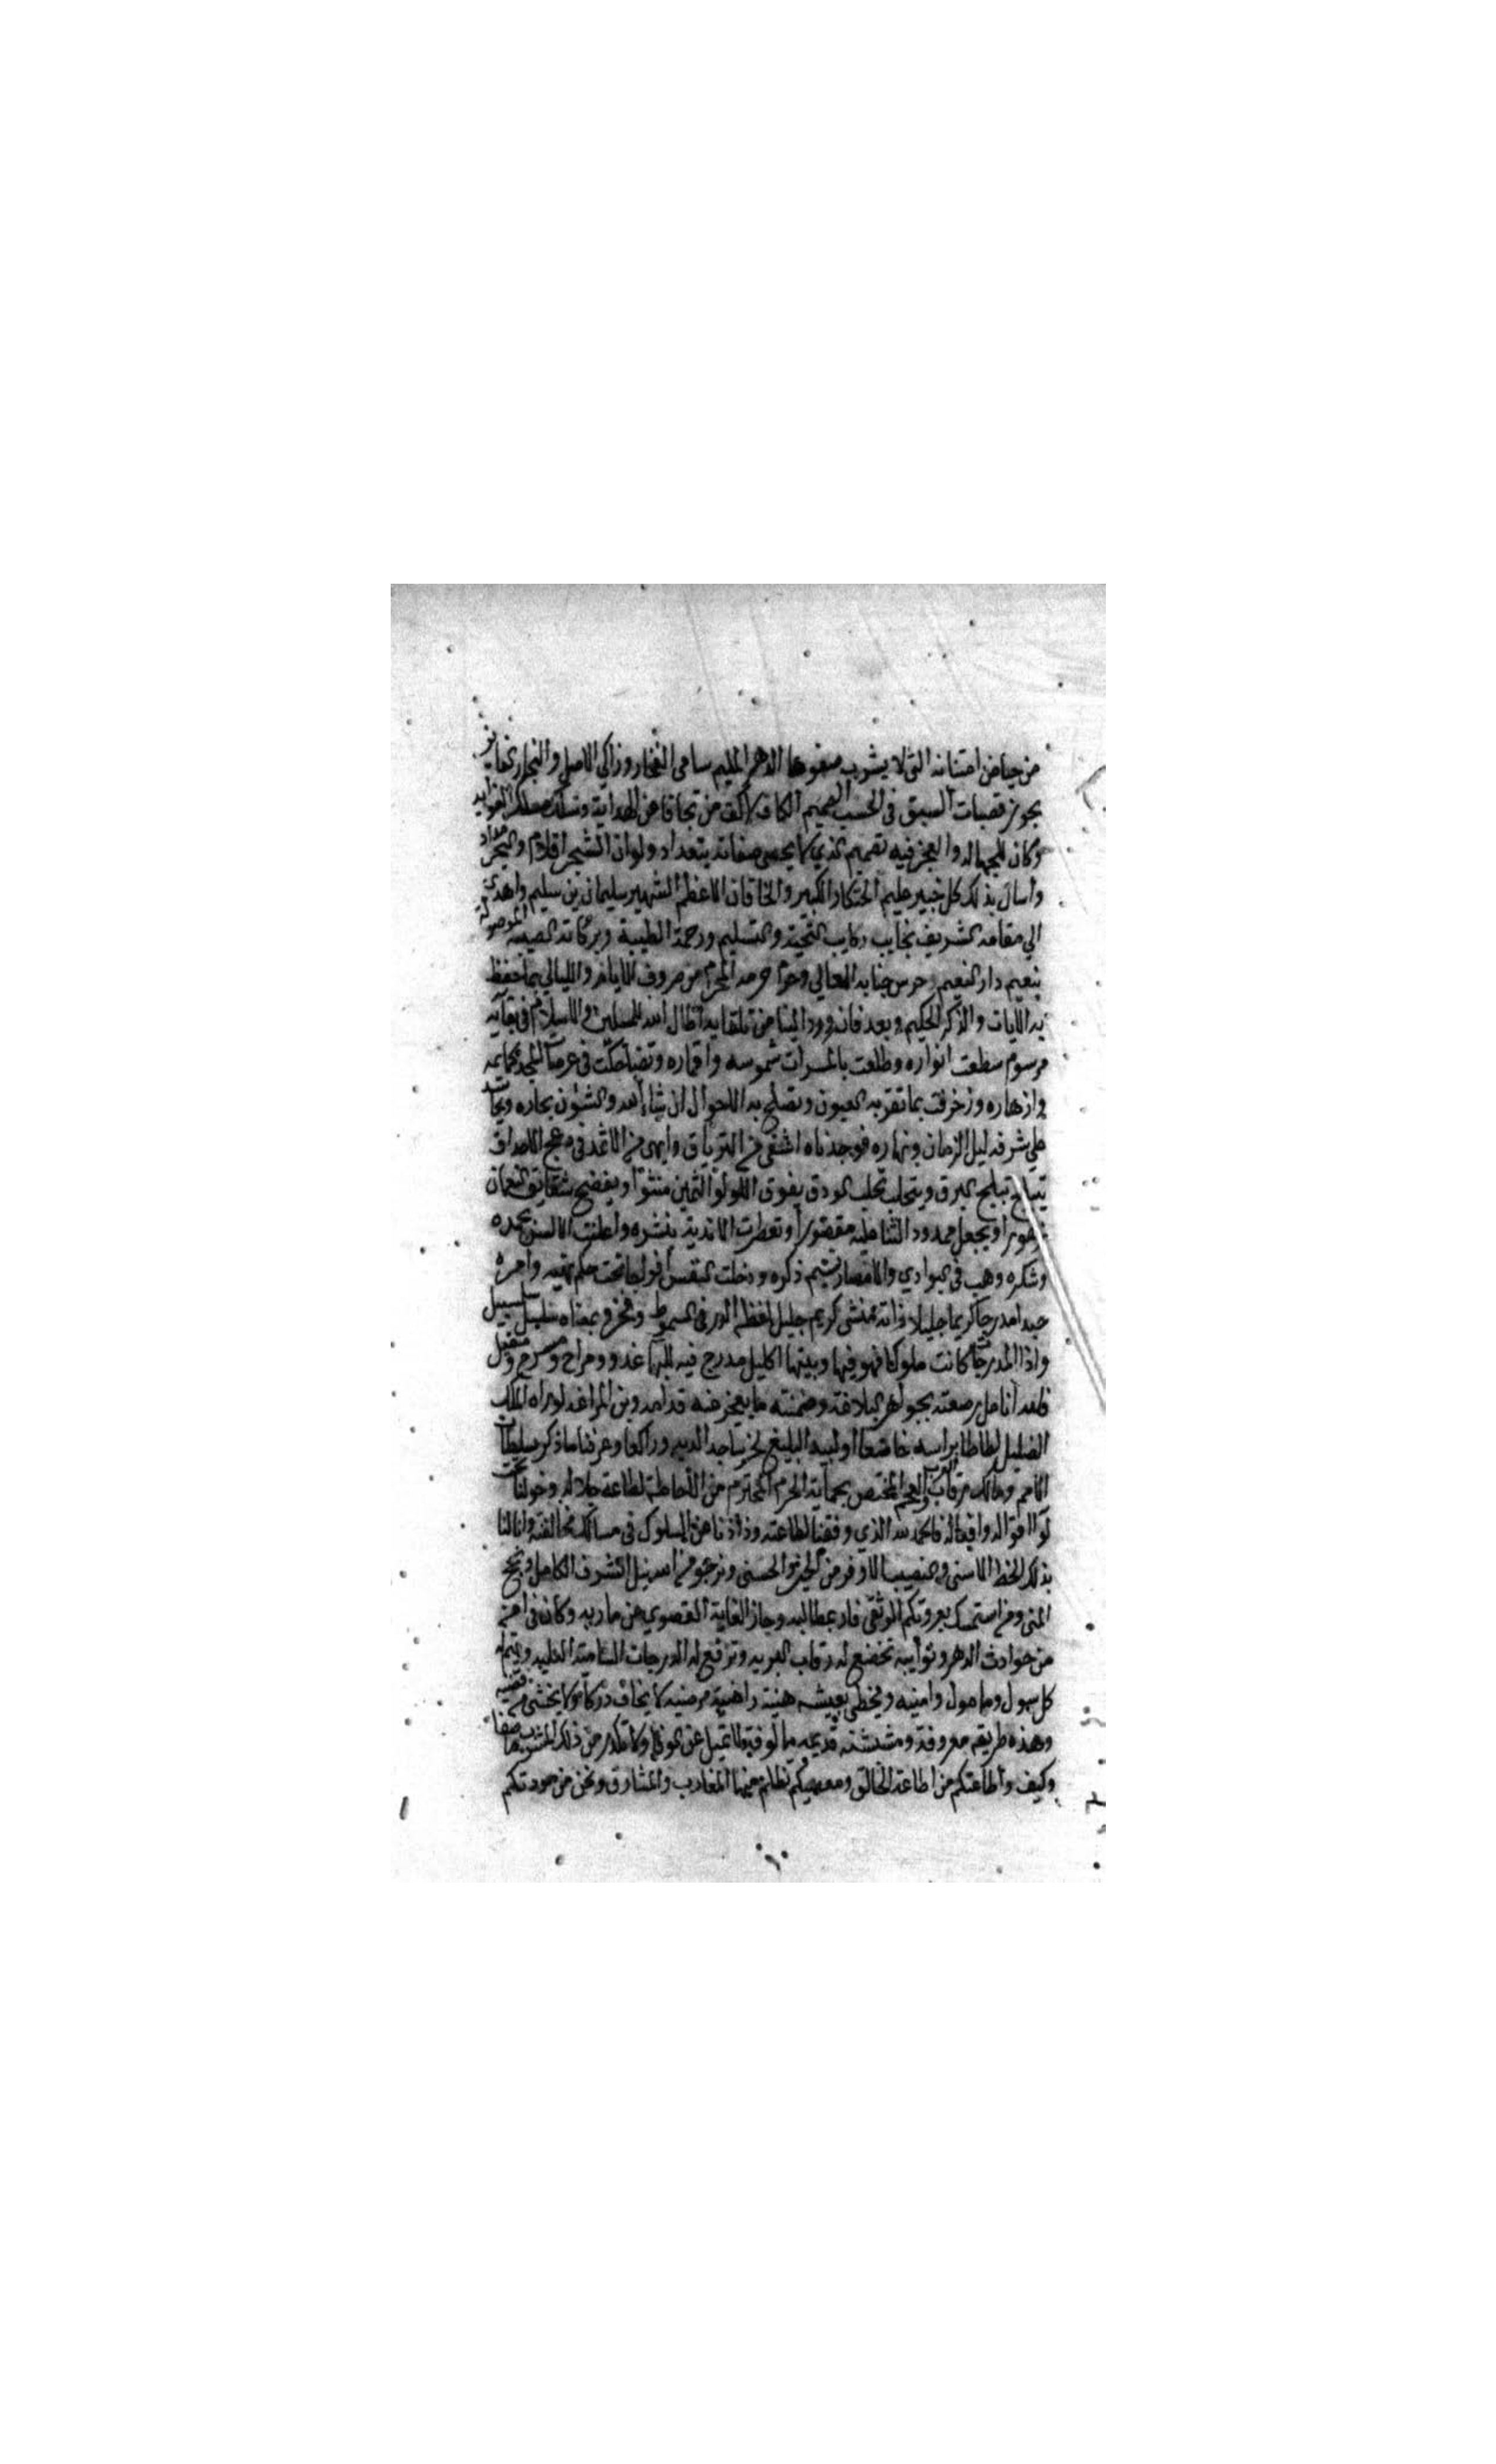 من حياض امتنانه التي لا يشوب صفوها الدهر المليم سامي الفخار وزاكي الاصل والنجار
يحوز قصبات السبق في الحسب الصميم الكاف لاكف من تجافا عن الهداية وسلك
وكان للجهالة والعجز فيه تصميم الذي لا يحصى صفاته بتعداد ولو ان الشجر اقلام والبحر مداد
واسال بذلك كل خبير عليم الخنكار الكبير والخاقان الاعظم الشهير سليمان بن سليم واهدى
الي مقامه الشريف نجايب ركايب التحية والتسليم ورحمة الطيبة وبركاته الموصولة
بنعيم دار النعيم حرس جنابه المعالي وحرم حرمه المحرم من صروف الايام والليالي بما حفظ
به الايات والذكر الحكيم وبعد فانه ورد الينا من تلقايه اطال الله للمسلمين والاسلام في بقايه
مرسوم سطعت انواره وطلعت بالمسرات شموسه واقماره وتضاحكت في عرصات المجد كمايمه
وازهاره وزخرفت بما تقر به العيون وتصلح به الاحوال ان شاء الله والشؤن بحاره
علي شرفه ليل الزمان ونهاره فوجدناه اشفى من الترياق وابهى من الاثمد في الاحداق
تبلج البرق ويتحلب تحلب الودق يفوق اللولو الثمين منثورا ويفضح شقايق النعمان
زهورا ويجعل ممدود الثنا عليه مقصورا وتعطرت الاندية بنشره واعلنت الالسن بحمده
وشكره وهب في البوادي والامصار نسيم ذكره ودخلت النفس افواجا تحت حكم نهيه وامره
حبدا مدرجا كريما جليلا ذاته منشى كريم جليل لفظه الدر في السموط ومعناه سلسبيل
واذا المدرجات كانت ملوكا فهو فيها وبينها اكليل مدرج فيه للبها غدو ومراح ومسرح ومقيل
فلله انامل رصعته بجواهر البلاغة وضمنته ما يعجز عنه قدامه وبن المراغه لو راه الملك
الضليل لطاطا براسه خاضعا او لبيد البليغ لخر ساجدا لديه وراكعا وعرفنا ما ذكر سلطان
الامم ومالك رقاب العرب والعجم المختص بحماية الحرم المحترم من الاحاطة لطاعة جلاله ودخولنا تحت
لوا اقواله وافعاله فالحمد لله الذي وفقنا لطاعته وذاذنا عن السلوك في مسالك مخالفته وانالنا
بذلك الحظ الاسنى والنصيب الاوفر من الخير والحسنى ونرجو من الله نيل الشرف الكامل ونجح
المنى ومن استمسك بعروتكم الوثقى فاز بمطالبه وحاز الغاية القصوى من ماربه وكان في امن
من حوادث الدهر ونوايبه تخضع له رقاب البريه وترفع له الدرجات السامية العليه ويتم له
كل سول ومامول وامنيه ويحظى بعيشه هنية راضية مرضيه لا يخاف دركا ولا يخشى من
وهذه طريقه معروفة وشنشنه قديمه مالوفة لا تميل عن الوفا ولا تكدر من ذلك
وكيف واطاعتكم من اطاعة الخالق ومعصيتكم تظلم منها المغارب والمشارق ونحن من مودتكم